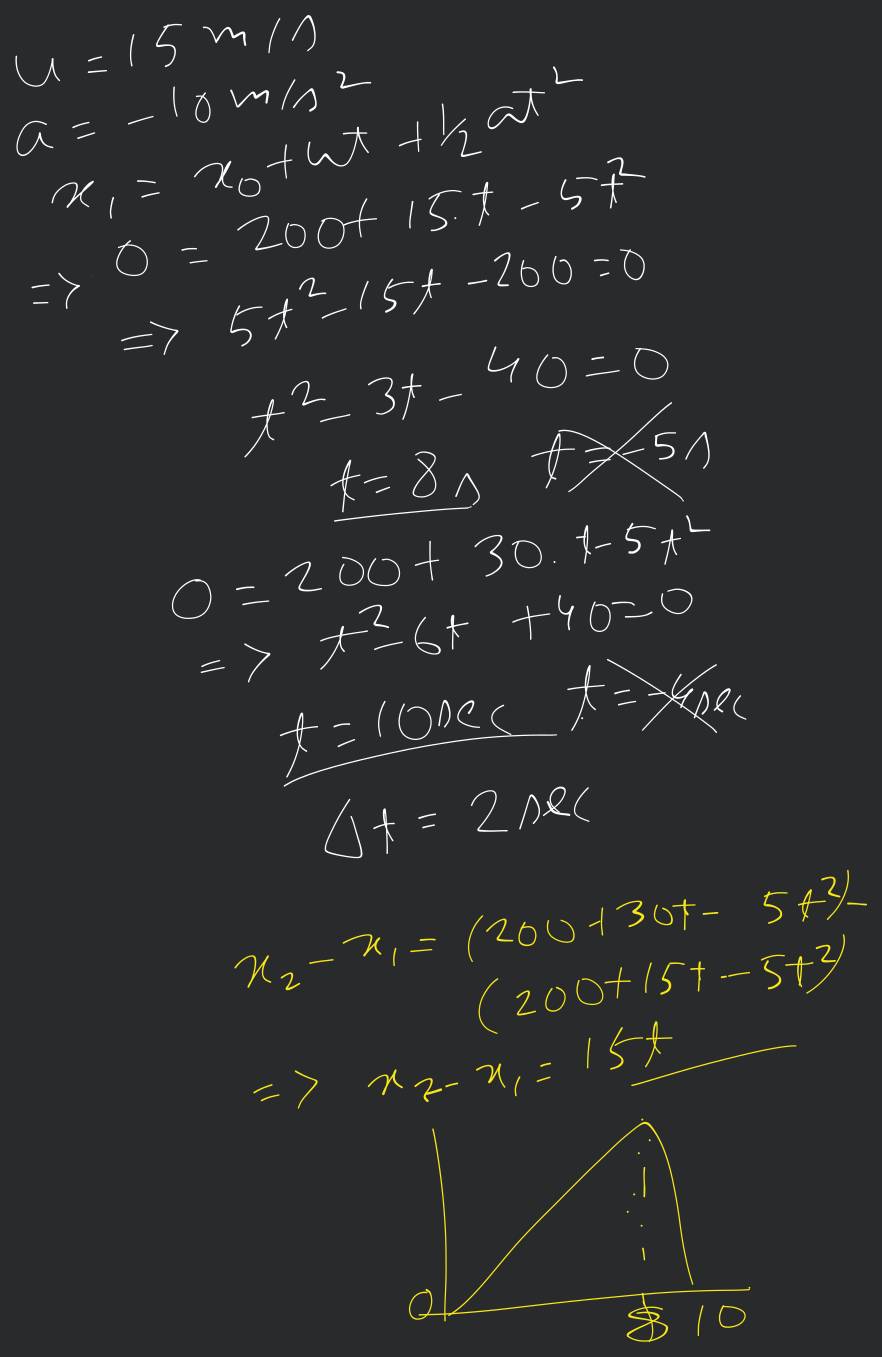 u = 15 m/s
a = -10 m/s²
x₁ = x₀ + ut + ½ at²
=> 0 = 200 + 15.t - 5t²
=> 5t² - 15t - 200 = 0
t² - 3t - 40 = 0
t = 8s t = -5s
0 = 200 + 30.t - 5t²
=> t² - 6t + 40 = 0
t = 10sec t = -4sec
Δt = 2sec
x₂ - x₁ = (200 + 30t - 5t²) -
(200 + 15t - 5t²)
=> x₂ - x₁ = 15t
0 8 10